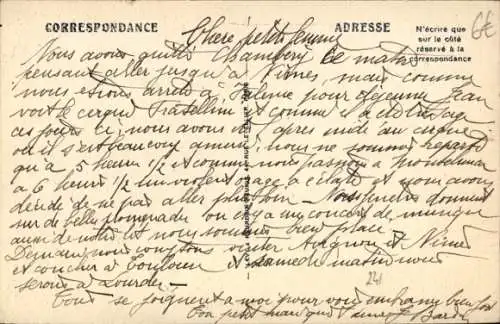 CORRESPONDANCE
ADRESSE
N'écrire que
sur le côté
réservé à la
correspondance
6€
Chère petite femme
Nous avons quitté Chambéry ce matin
pensant aller jusqu'à Nîmes, mais comme
nous étions arrêté à Valence pour déjeuner Jean
voit le cirque Fratellini et comme il a
ces jours ci, nous avons été après midi au cirque
où il s'est beaucoup amusé, nous ne sommes reparti
qu'à 5 heures 1/2 et comme nous passions à Montélimar
à 6 heures 1/2 un violent orage a éclaté et nous avons
décidé de ne pas aller plus loin. donnent
sur de belle promenade où il y a un concours de musique
aussi de notre lit nous sommes bien placé.
Demain nous comptons visiter Avignon et Nîmes
et coucher à Toulouse et samedi matin nous
serons à Lourdes.
Tous se joignent à moi pour vous embrasser bien fort
Ton petit mari qui t'aime
241